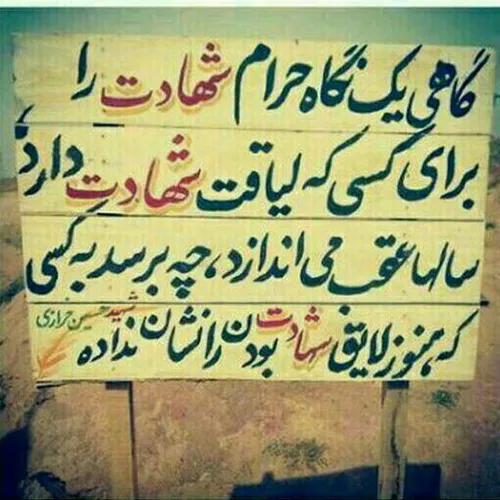 گاهی یک نگاه حرام شهادت را
برای کسی که لیاقت شهادت دارد،
سالها عقب می اندازد، چه برسد به کسی
که هنوز لایق شهادت بودن را نشان نداده
شهید حسین خرازی